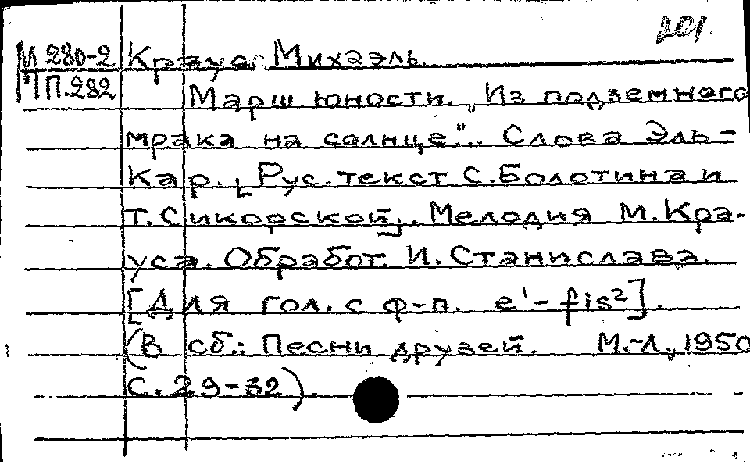 201.
М 280-2 Краус Михаэль.
МП.282
Марш юности. „Из подземного
мрака на солнце". Слова Эль-
Кар. [Рус. текст С. Болотина и
Т. Сикорской]. Мелодия М. Кра-
уса. Обработ. И. Станислава.
[Для гол. с ф-п. e¹-fis²].
(В сб.: Песни друзей. М.-Л., 1950
С. 29-32).